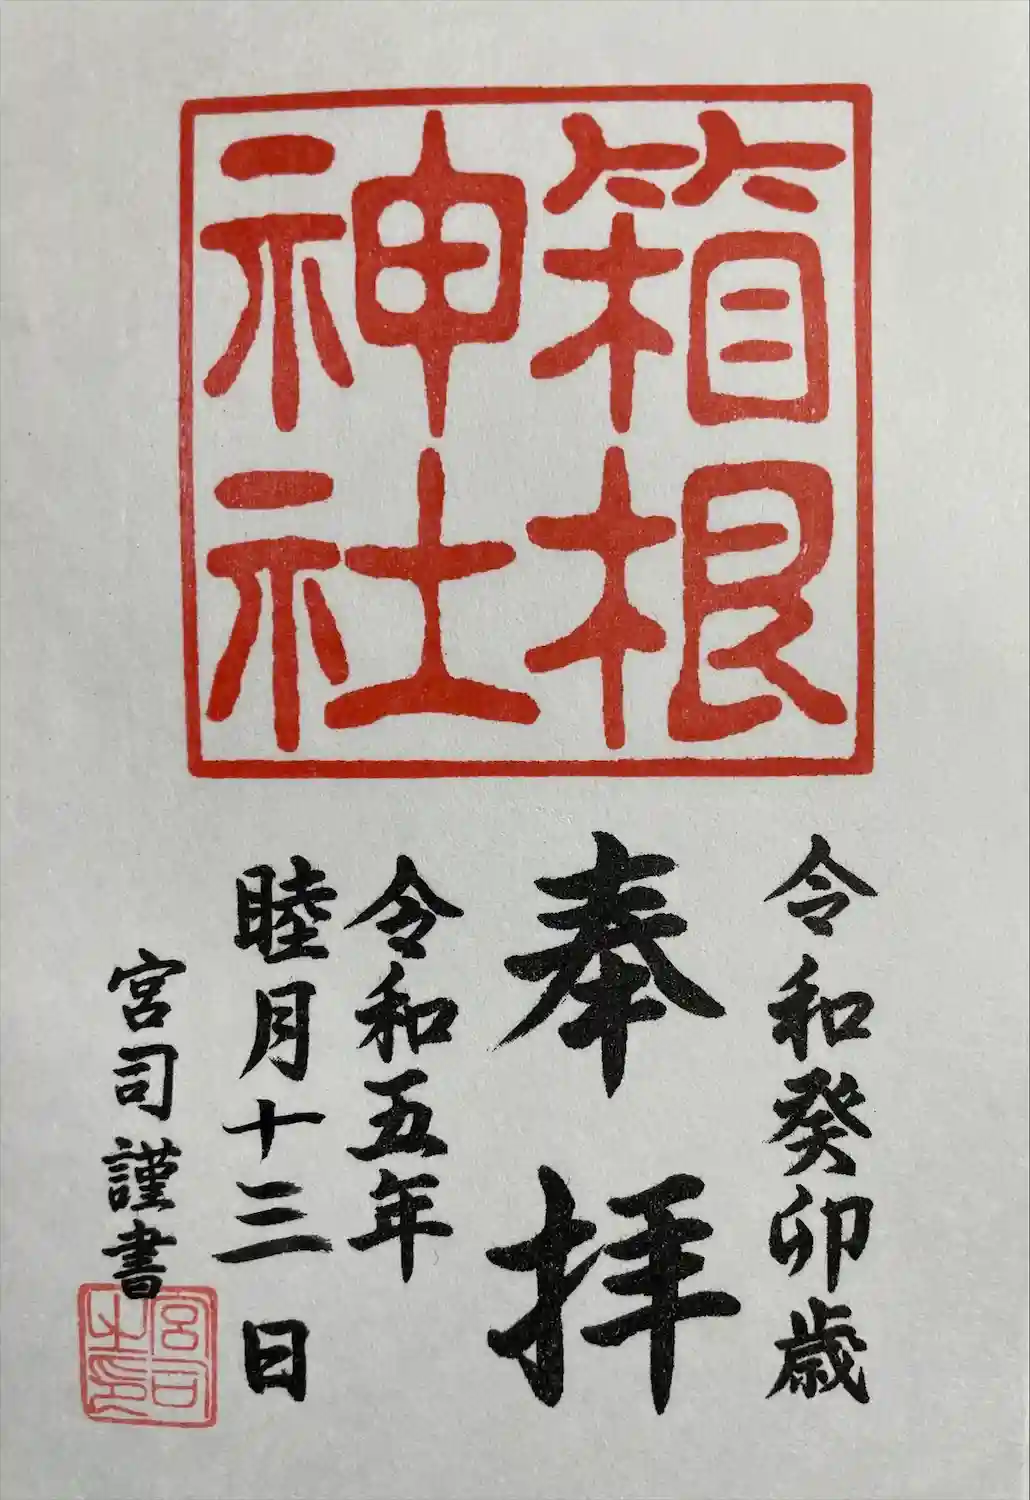 箱根
神社
令和癸卯歳
奉拝
令和五年
睦月十三日
宮司謹書
宮司
之印